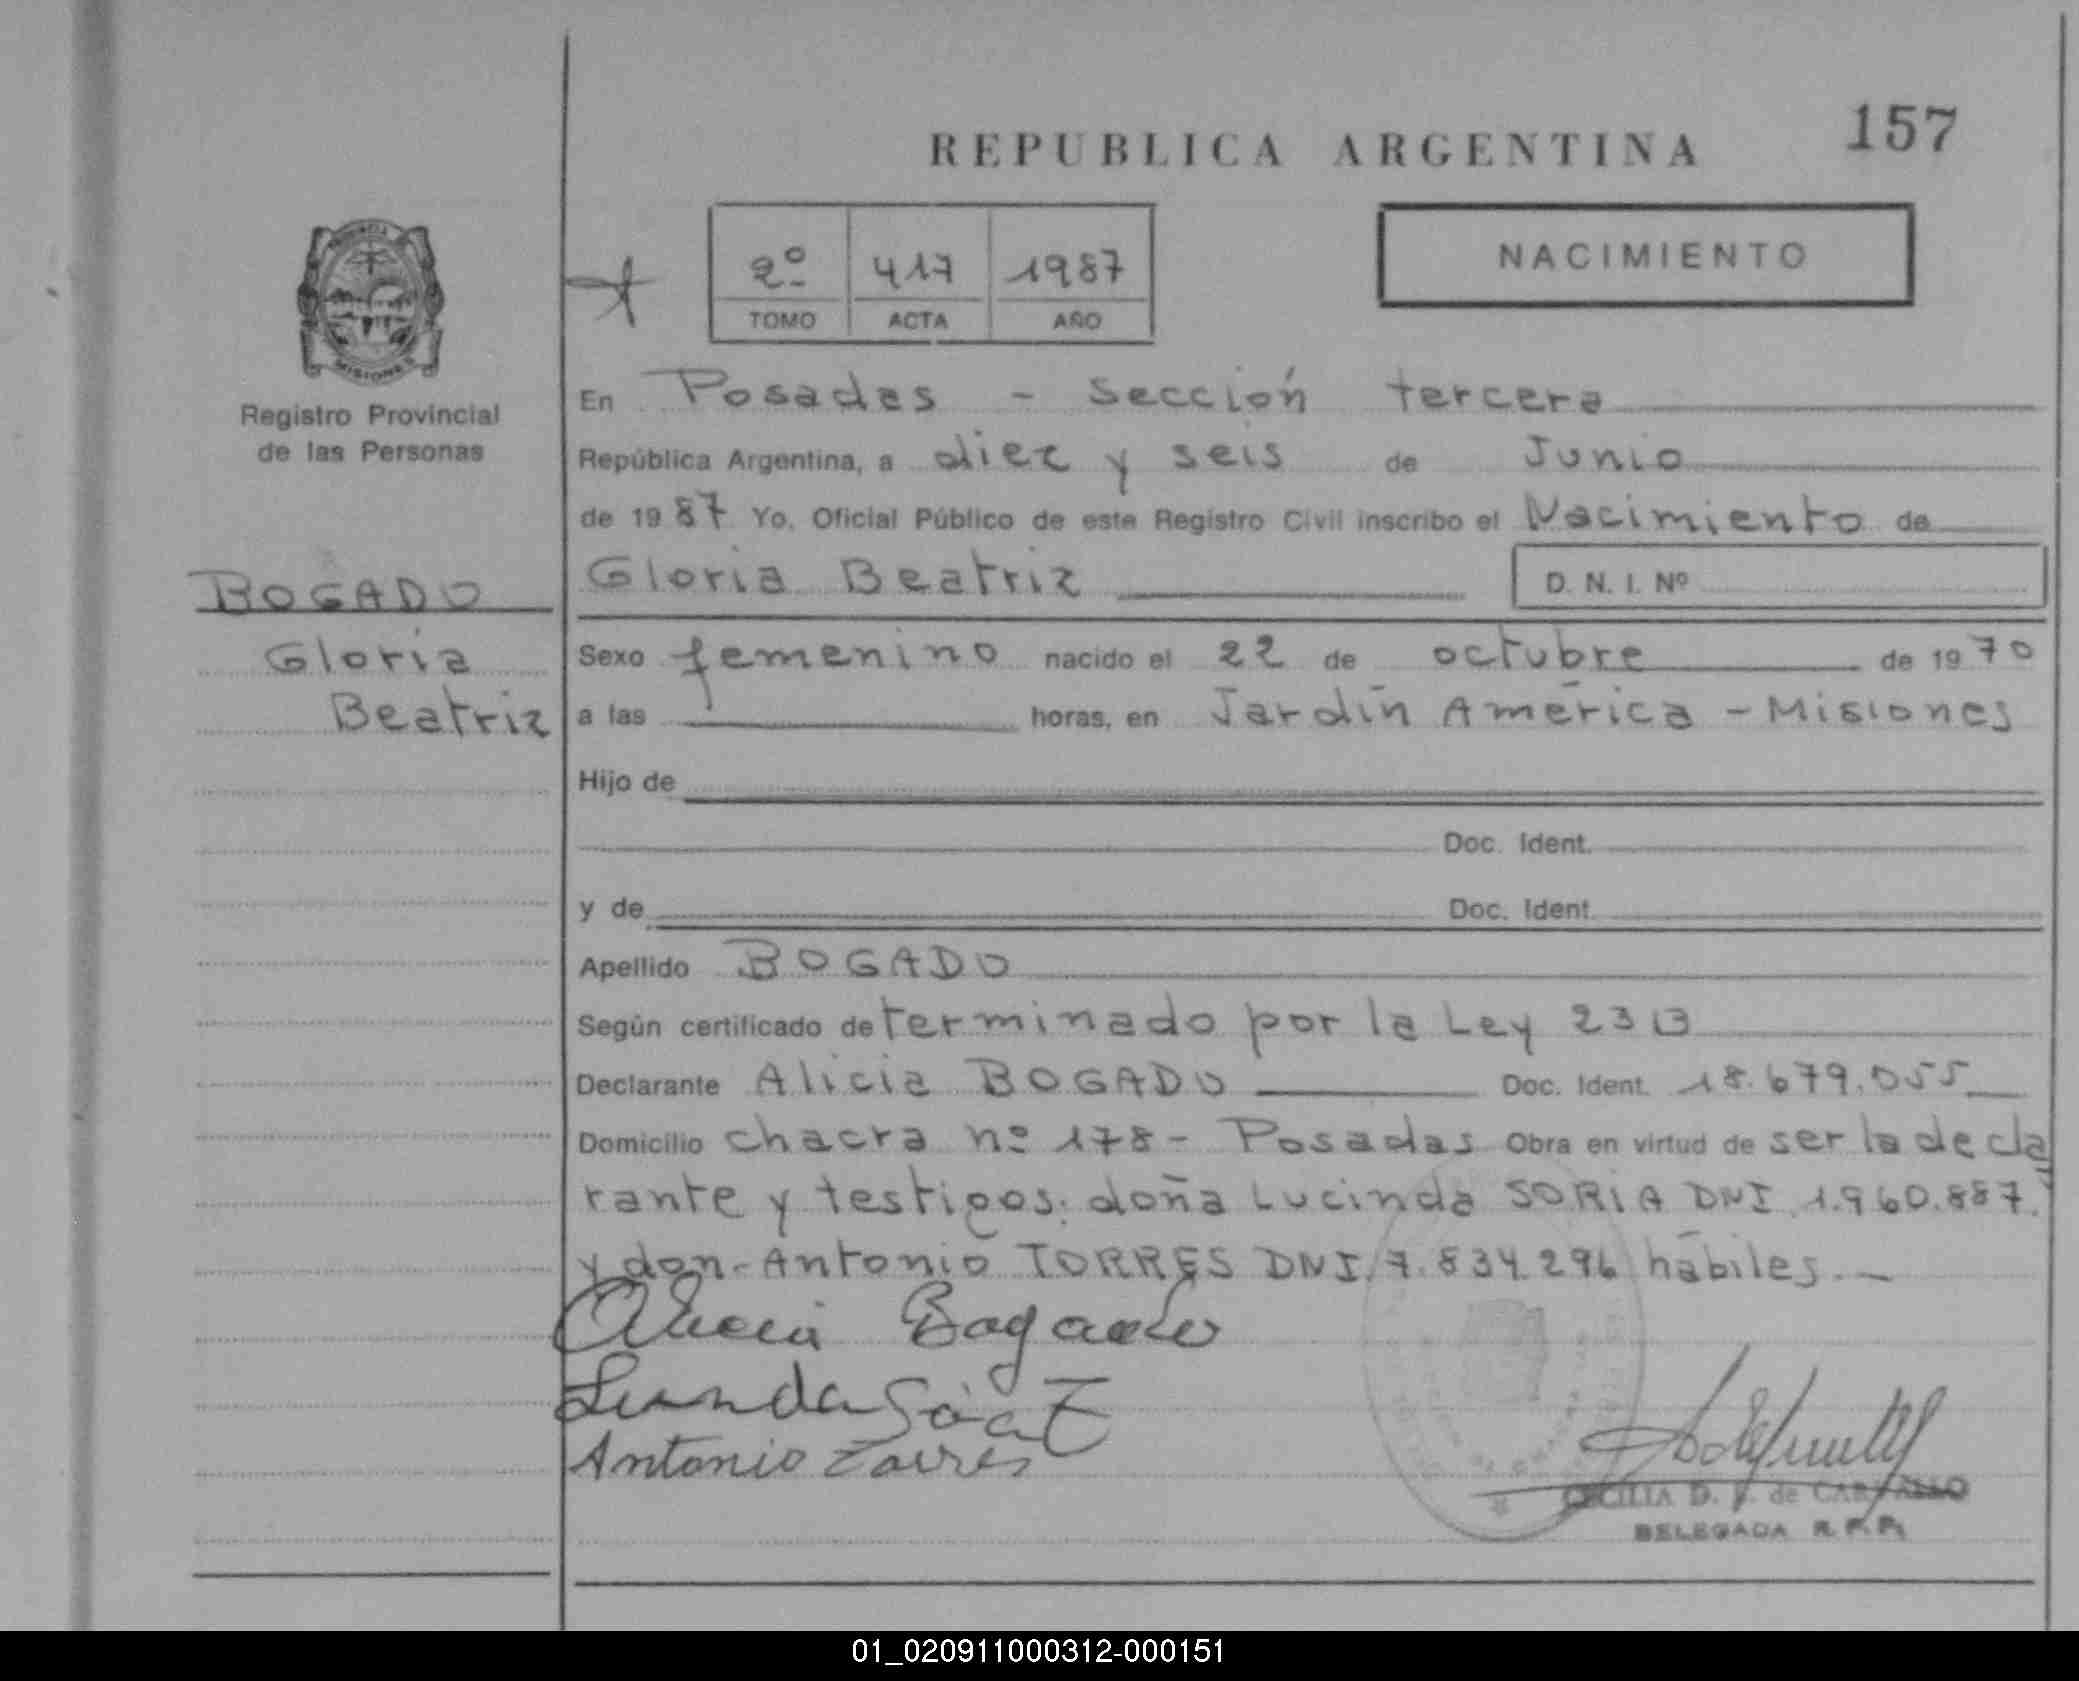 157
REPUBLICA ARGENTINA
NACIMIENTO
2º 417 1987
TOMO ACTA AÑO
PROVINCIA
MISIONES
Registro Provincial
de las Personas
BOGADO
Gloria
Beatriz
En Posadas - Sección tercera
República Argentina, a diez y seis de Junio
de 1987 Yo, Oficial Público de este Registro Civil inscribo el Nacimiento de
Gloria Beatriz D. N. I. Nº
Sexo femenino nacido el 22 de octubre de 1970
a las horas, en Jardín América - Misiones
Hijo de
Doc. Ident.
y de Doc. Ident.
Apellido BOGADO
Según certificado determinado por la Ley 2313
Declarante Alicia BOGADO Doc. Ident. 18.679.055
Domicilio chacra nº 178 - Posadas Obra en virtud de ser la decla
rante y testigos: doña Lucinda SORIA DNI. 1.960.887.
y don Antonio TORRES DNI. 7.834.296 hábiles.-
Alicia Bogado
Antonio Torres
CECILIA D. de
DELEGADA R. P. P.
01_020911000312-000151